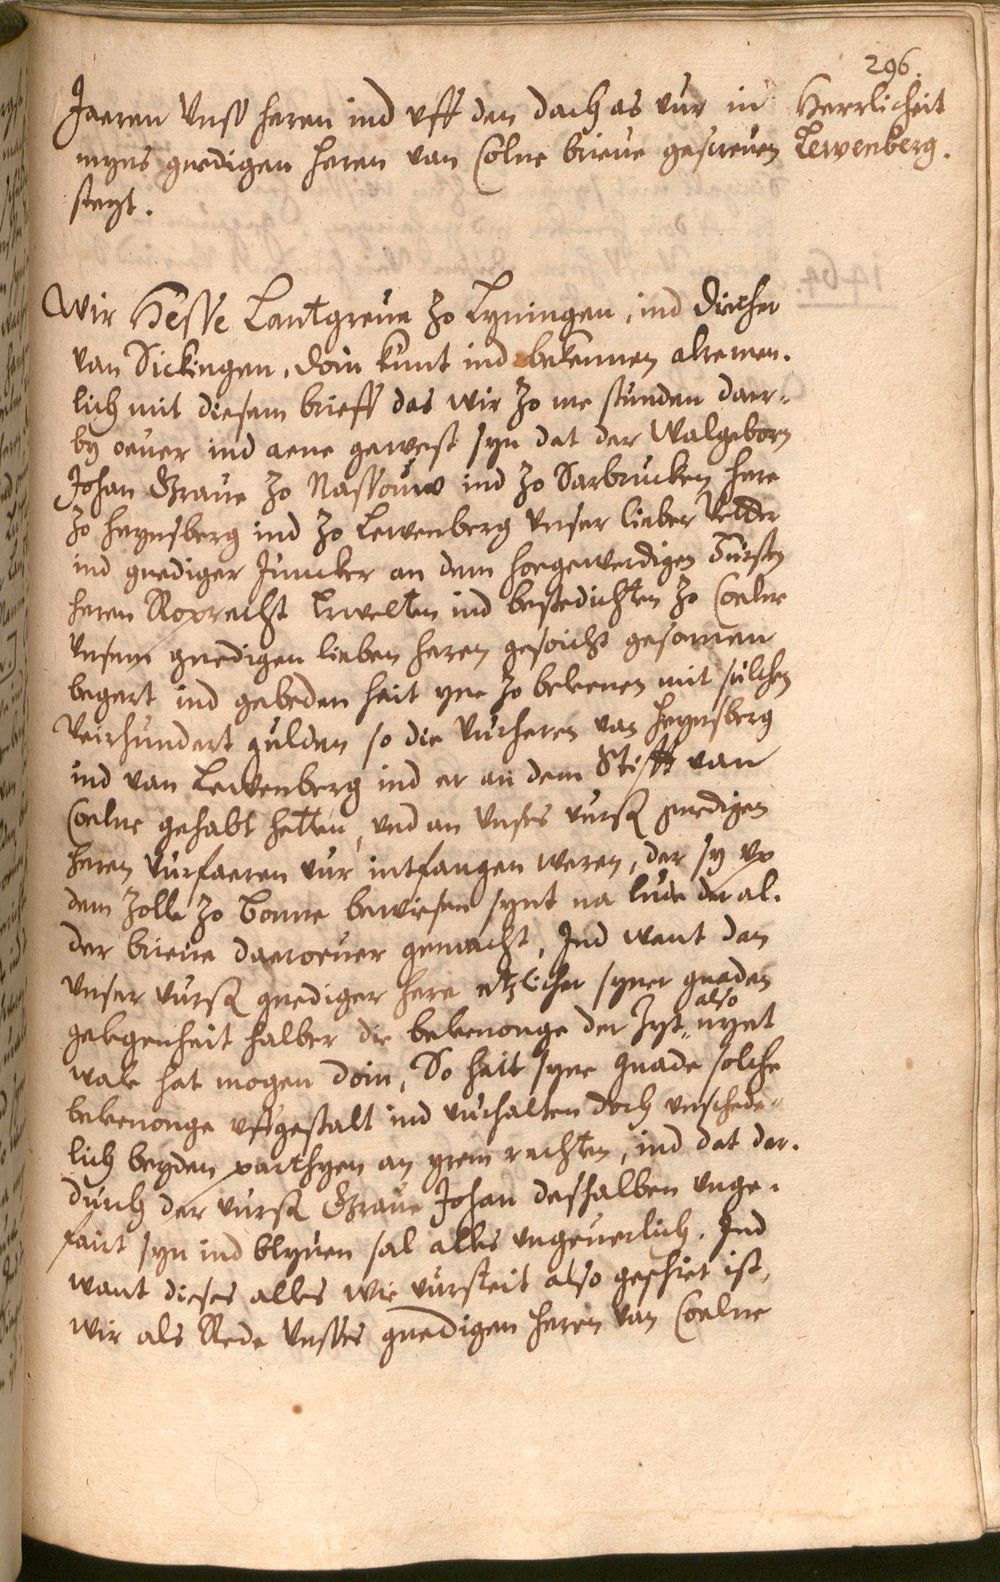 296.
Jaeren Unss heren ind uff den dach as vur in
mijns gnedigen heren van Colne brieve geschreven
steyt.
Herrlicheit
Lewenberg.
Wir Hesse Lantgreve zo Lyningen, ind Diether
van Sickingen, doin kunt ind bekennen alremen-
lich mit diesem brieff das wir zo me stunden daer-
by oever ind aene gewest syn dat der Walgeborn
Johan Grave zo Nassouw ind zo Sarbrucken here
zo heynsberg ind zo Lewenberg unser lieber Vedder
ind gnediger Juncker an dem hoegewerdigen Fursten
heren Roprecht Erwelten ind bestedichten zo Coelne
unsem gnedigen lieben heren gesoicht gesonnen
begert ind gebeden hait yne zo beleenen mit sulchen
Veirhundert gulden so die Vurheren van heynsberg
ind van Lewenberg ind er an dem Stifft van
Coelne gehabt hetten, und an unses vurss gnedigen
heren Vurfaeren vur intfangen weren, der sy up
dem zolle zo Bonne bewiesen synt na lude der al-
der brieve daeroever gemacht, Ind want dan
unser vurss gnediger here etzlicher syner gnaden
gelegenheit halber die beleenonge der zyt also nyet
wale hat mogen doin, So hait syne gnade solche
beleenonge uffgestalt ind vurhalten doch unschede-
lich beyden parthyen an yrem rechten, ind dat dar-
durch der vurss Grave Johan deshalben unge-
fairt syn ind blyven sal alles ungeverlich. Ind
want dieses alles wie vursteit also geschiet ist,
wir als Rede unsses gnedigen heren van Coelne